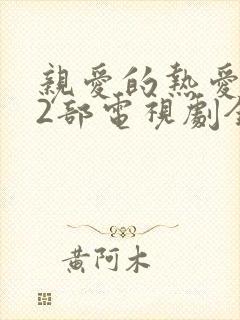 親愛的熱愛
2部電視劇全
黃阿木